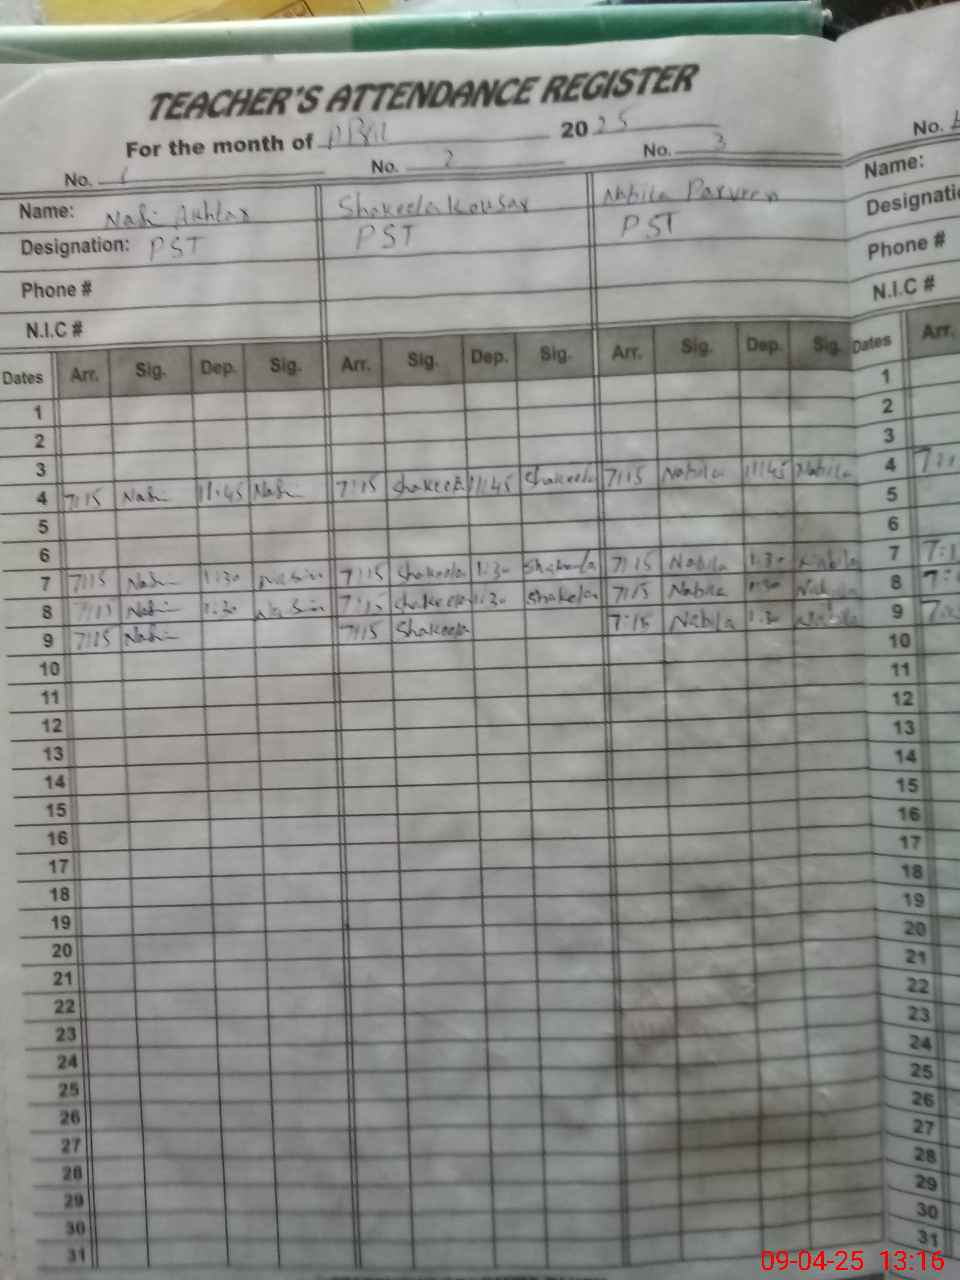 TEACHER'S ATTENDANCE REGISTER
For the month of 2025
No. 1 No. 2 No. 3 No.
Name: Akhtar Shakeela Kousar Nabila Parveen Name:
Designation: PST PST PST
Phone # Phone #
N.I.C # N.I.C #
Dates Arr. Sig. Dep. Sig. Arr. Sig. Dep. Sig. Arr. Sig. Dep. Sig. Dates Arr.
1 1
2 2
3 3
4 7:15 11:45 7:15 Shakeela 11:45 Shakeela 7:15 Nabila 11:45 Nabila 4
5 5
6 6
7 7:15 1:30 7:15 Shakeela 1:30 Shakeela 7:15 Nabila 1:30 Nabila 7
8 7:15 1:30 7:15 Shakeela 1:30 Shakeela 7:15 Nabila Nabila 8
9 7:15 7:15 Shakeela 7:15 Nabila 1:30 Nabila 9
10 10
11 11
12 12
13 13
14 14
15 15
16 16
17 17
18 18
19 19
20 20
21 21
22 22
23 23
24 24
25 25
26 26
27 27
28 28
29 29
30 30
31 31
09-04-25 13:16